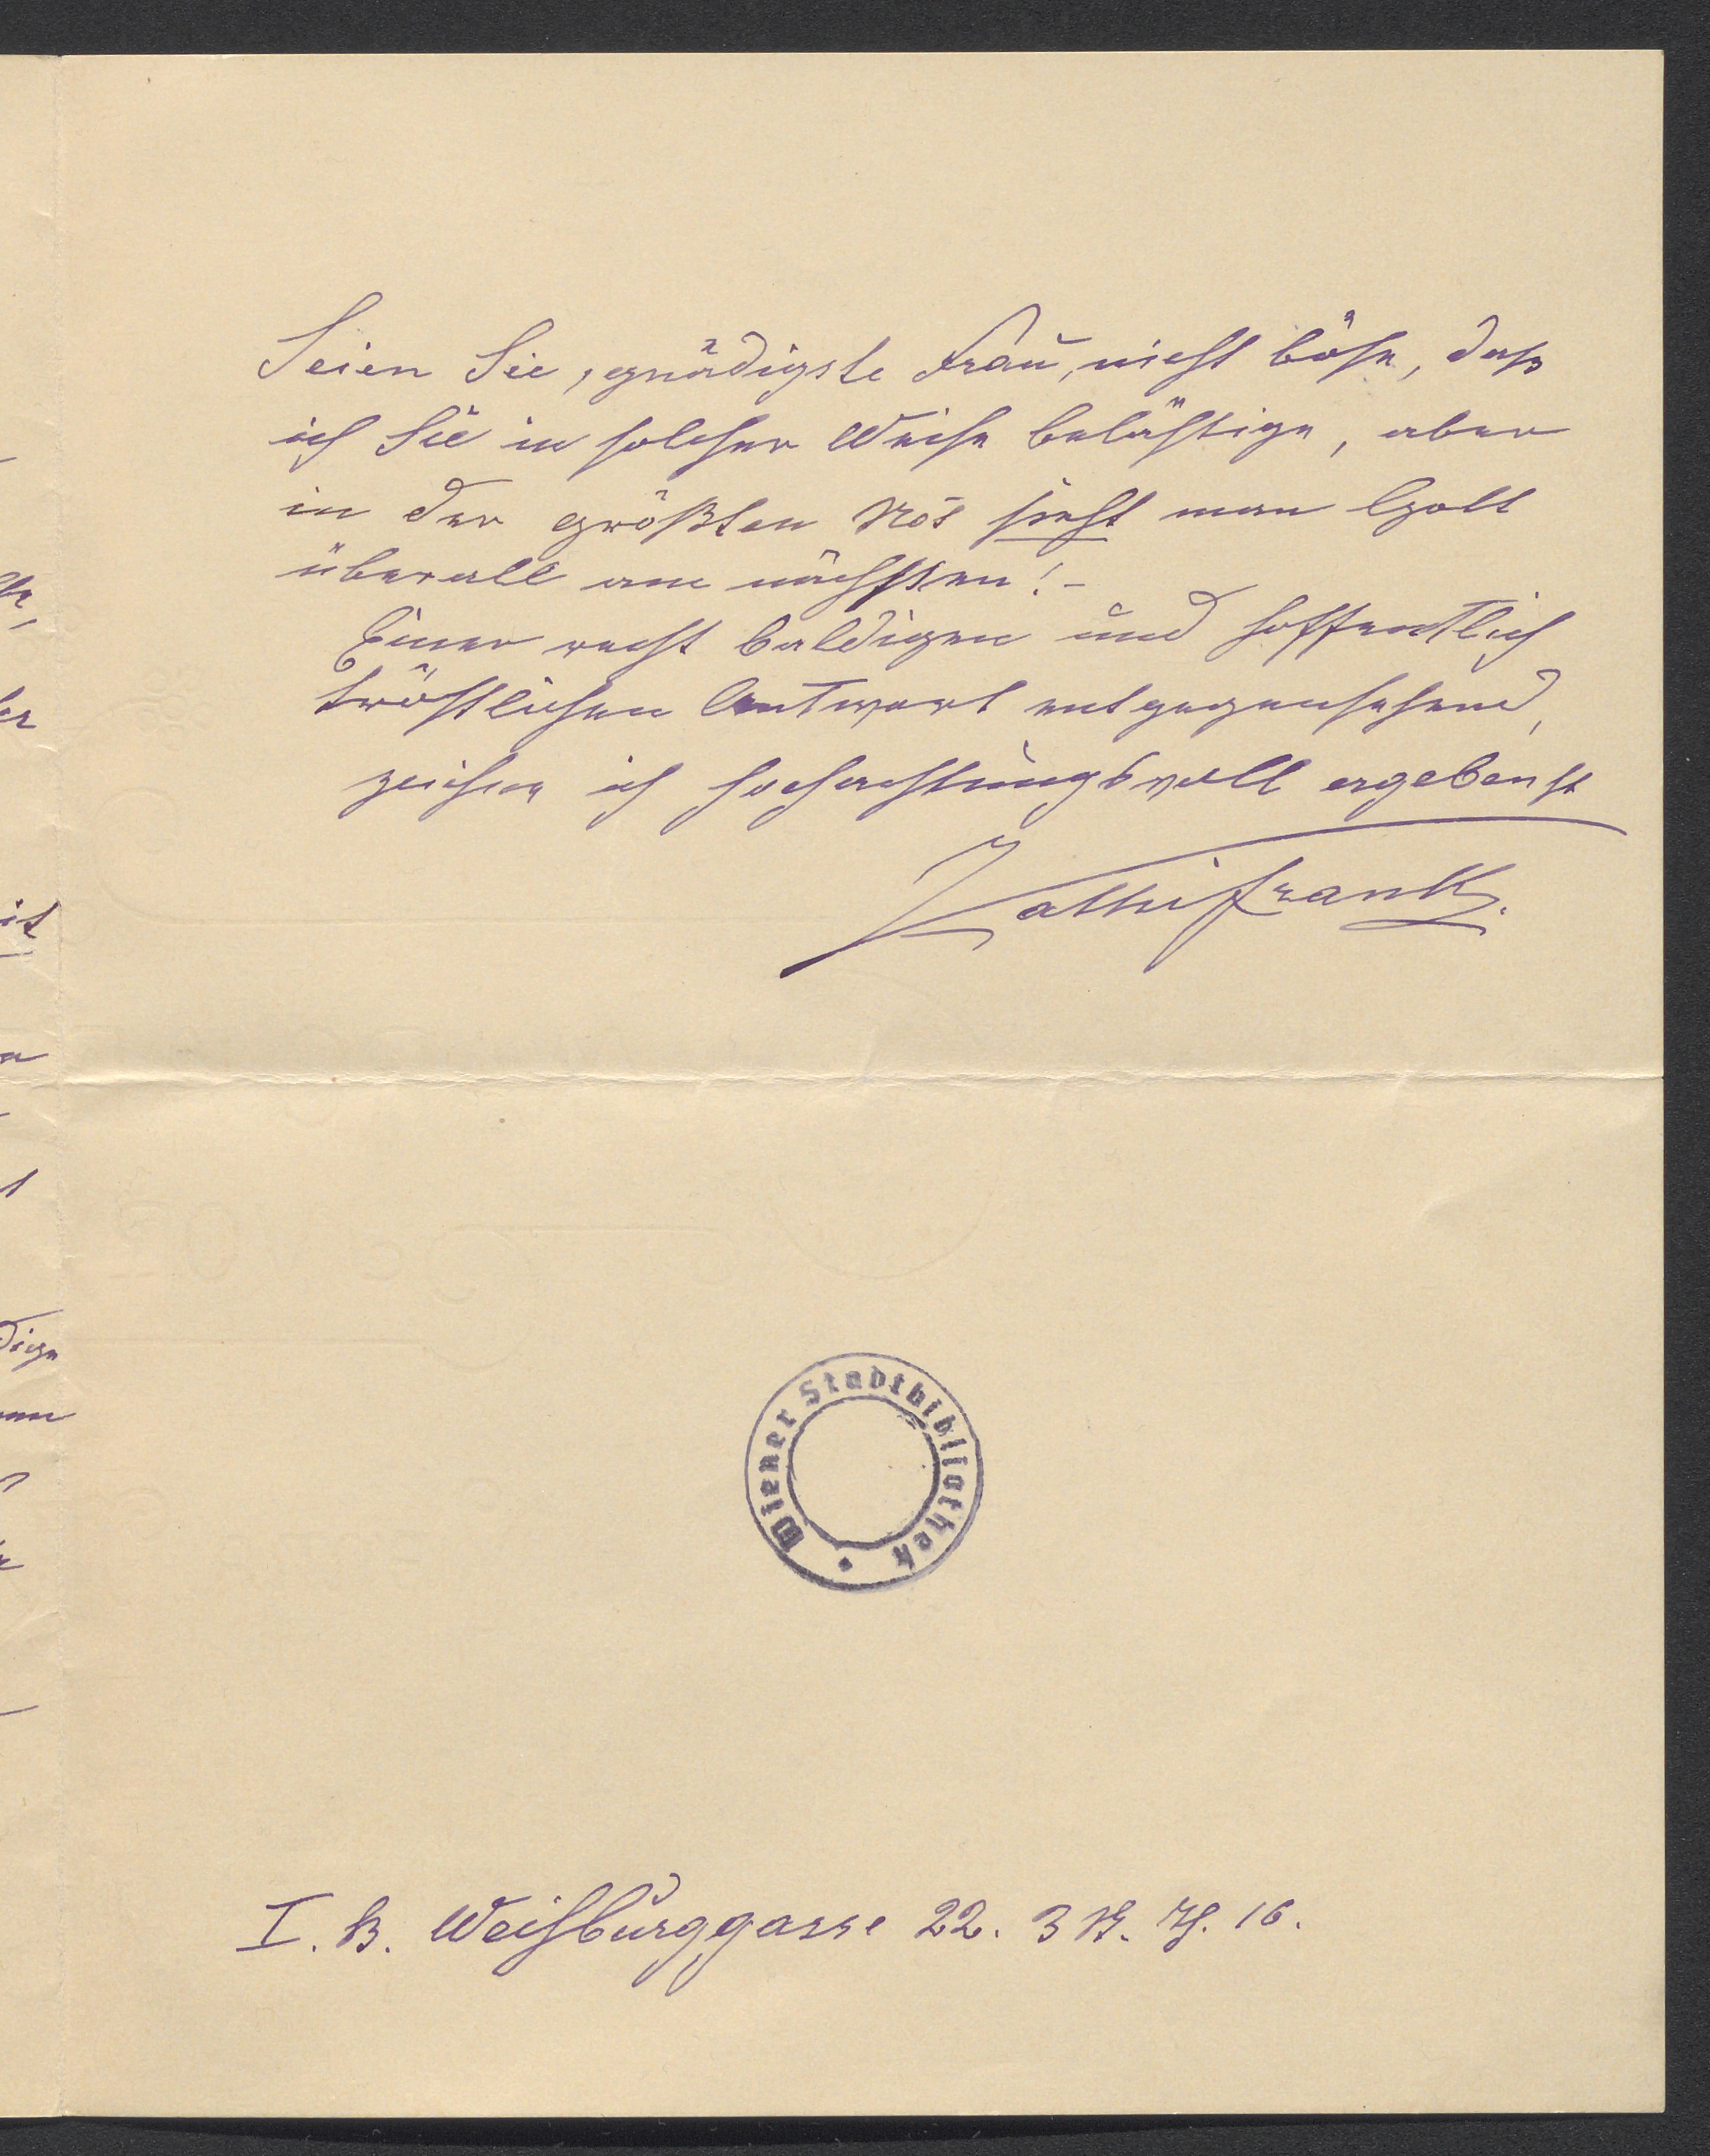 Seien Sie, gnädigste Frau, nicht böse, daß
ich Sie in solcher Weise belästige, aber
in der größten Not sieht man Gott
überall am nächsten! -
Einer recht baldigen und hoffentlich
tröstlichen Antwort entgegensehend,
zeichne ich hochachtungsvoll ergebenst
Kathi Frank.
Wiener Stadtbibliothek
I. B. Weihburggasse 22. 3 St. Th. 16.